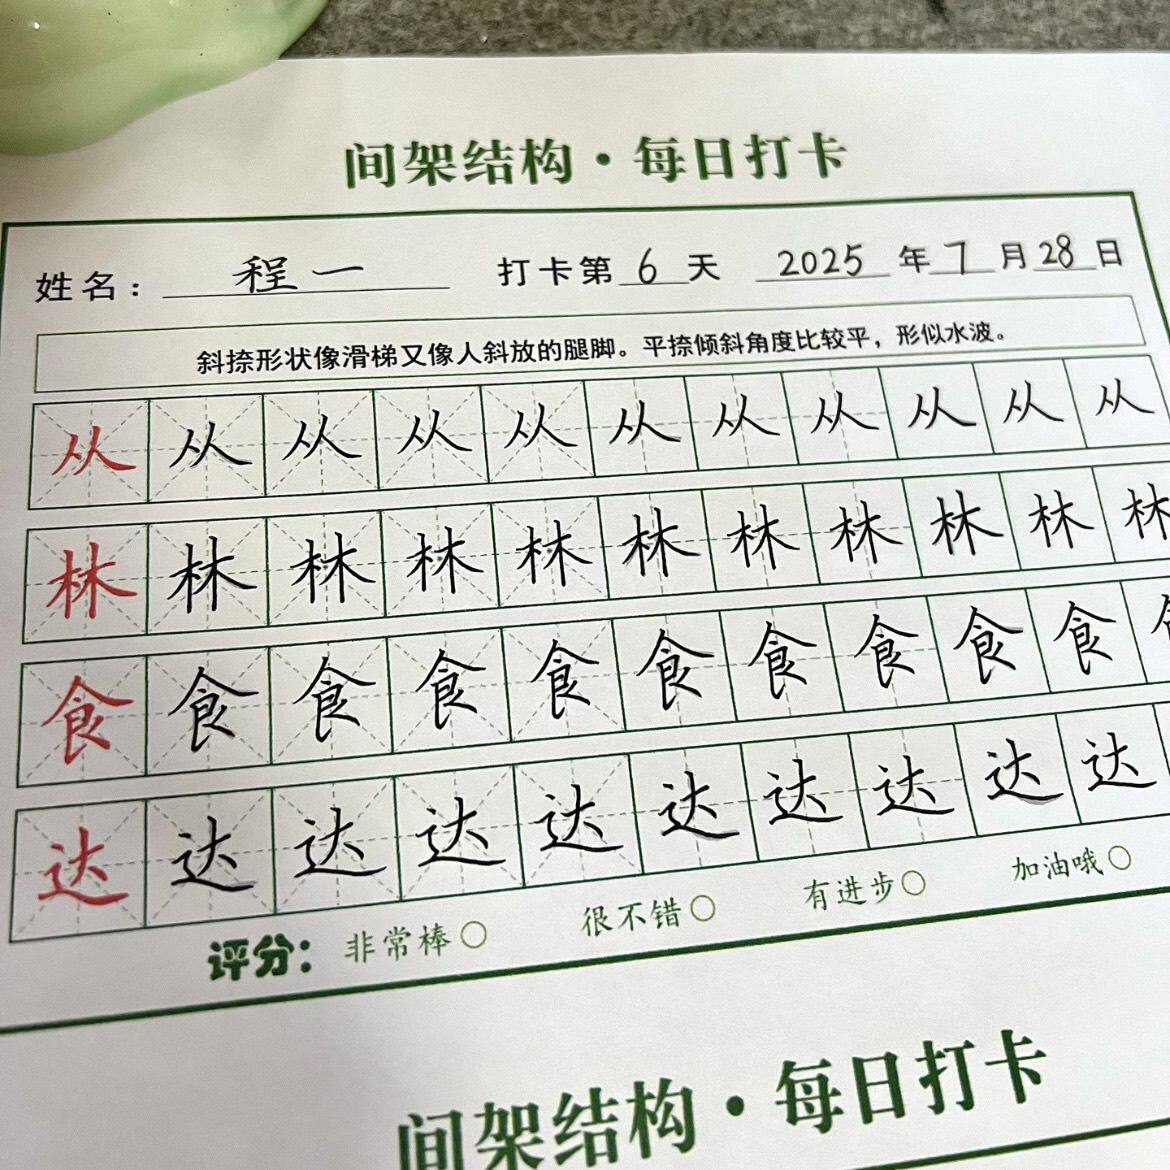 间架结构·每日打卡
姓名：程一 打卡第6天 2025年7月28日
斜捺形状像滑梯又像人斜放的腿脚。平捺倾斜角度比较平，形似水波。
从从从从从从从从从从从
林林林林林林林林林林林
食食食食食食食食食食
达达达达达达达达达达
评分：非常棒○ 很不错○ 有进步○ 加油哦○
间架结构·每日打卡